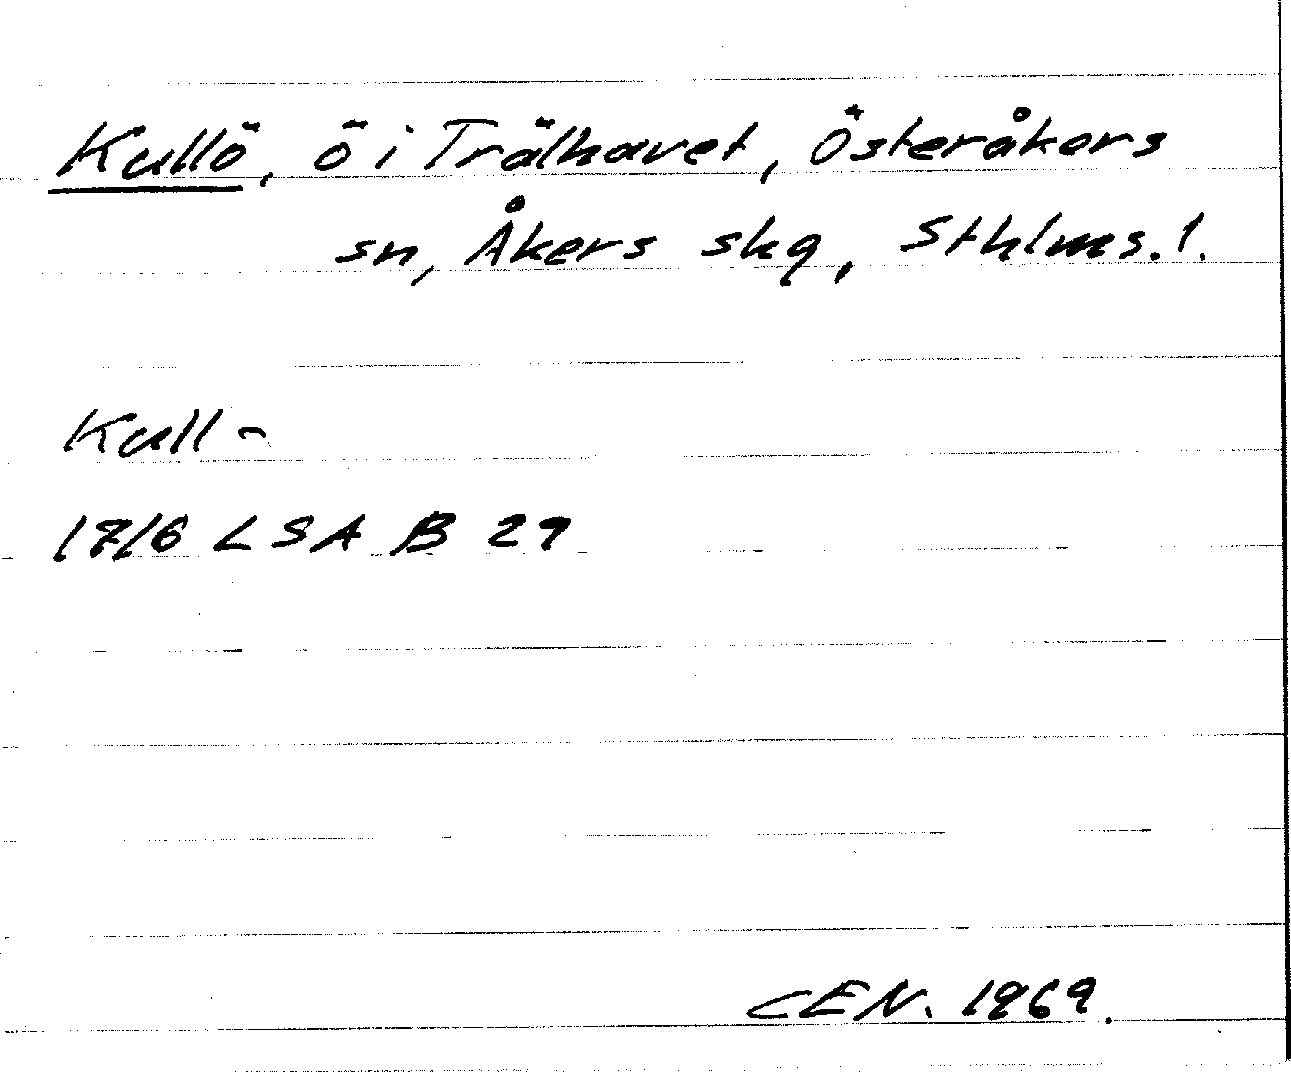 Kullö, ö i Trälhavet, Österåkers
sn, Åkers skg, Sthlms. l.
Kull-
1716 LSA B 29
CEN. 1969.